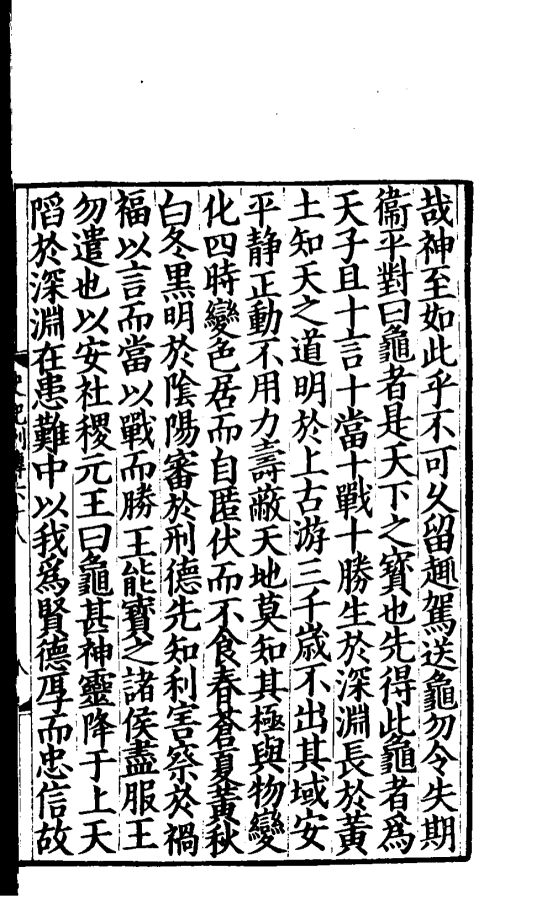 哉神至如此乎不可久留趣駕送龜勿令失期
衞平對曰龜者是天下之寳也先得此龜者爲
天子且十言十當十戰十勝生於深淵長於黃
土知天之道明於上古游三千歲不出其域安
平静正動不用力壽蔽天地莫知其極與物變
化四時變色居而自匿伏而不食春蒼夏黃秋
白冬黑明於陰陽審於刑德先知利害察於禍
福以言而當以戰而勝王能寳之諸侯盡服王
勿遣也以安社稷元王曰龜甚神靈降于上天
陷於深淵在患難中以我爲賢德厚而忠信故